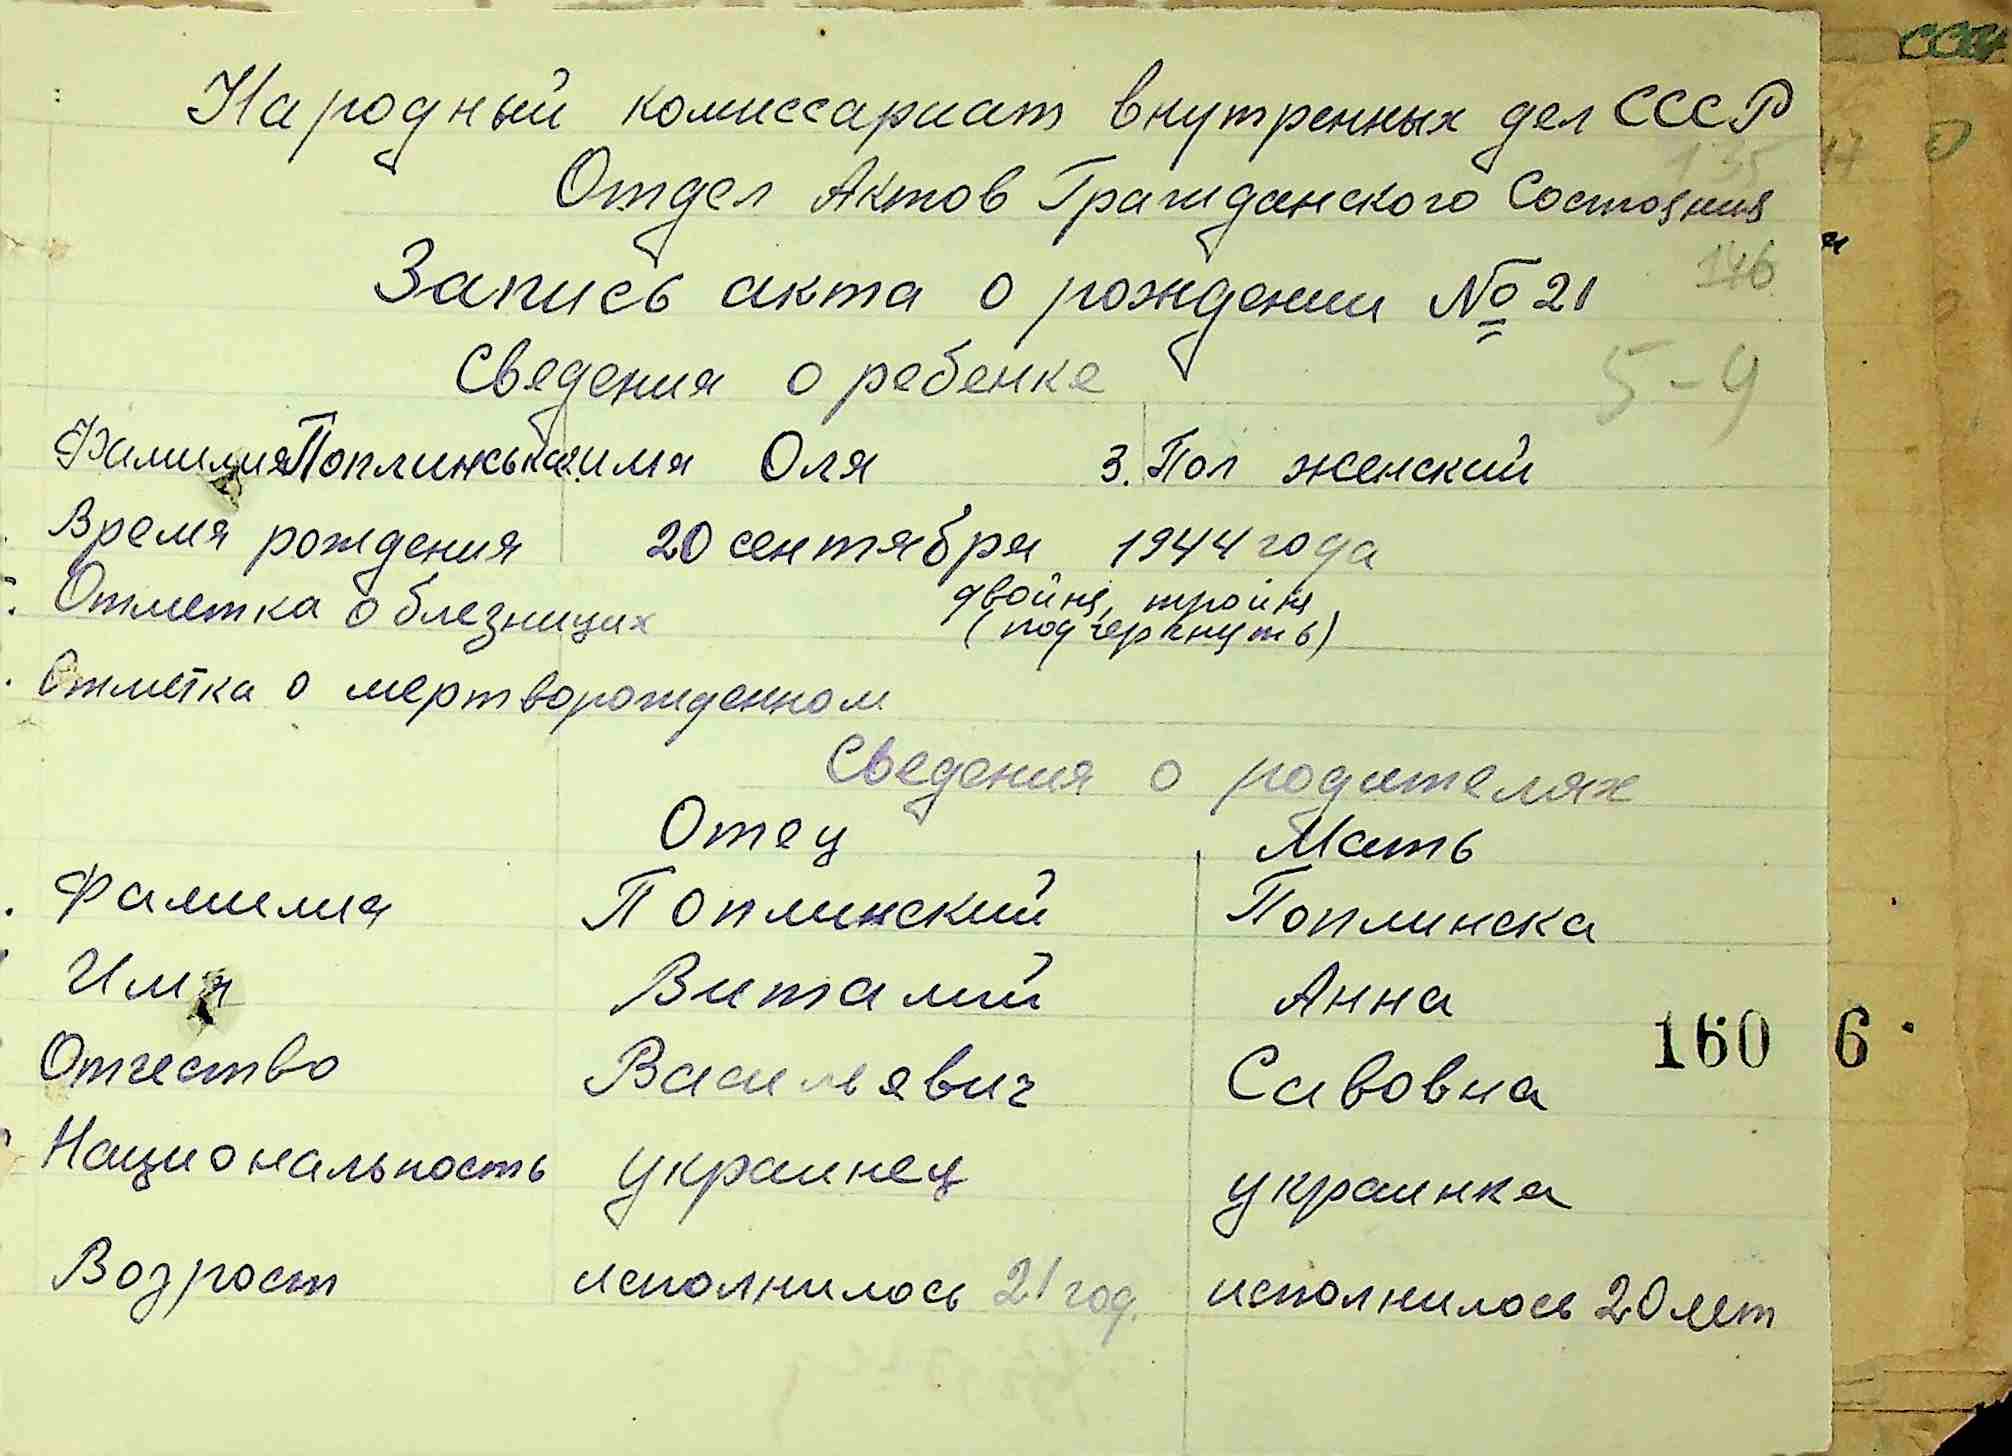 Народный комиссариат внутренных дел СССР
Отдел Актов Гражданского Состояния
Запись акта о рождении № 21
146
Сведения о ребенке
5-9
Фамилия Поплинська имя Оля 3. Пол женский
Время рождения 20 сентября 1944 года
Отметка о блезницих двойня, тройня
(подчеркнуть)
Отметка о мертворожденном
Сведения о родителях
Отец Мать
Фамилия Поплинский Поплинска
Имя Виталий Анна
160 6
Отчество Васильевич Савовна
Национальность украинец украинка
Возрост исполнилось 21 год. исполнилось 20 лет